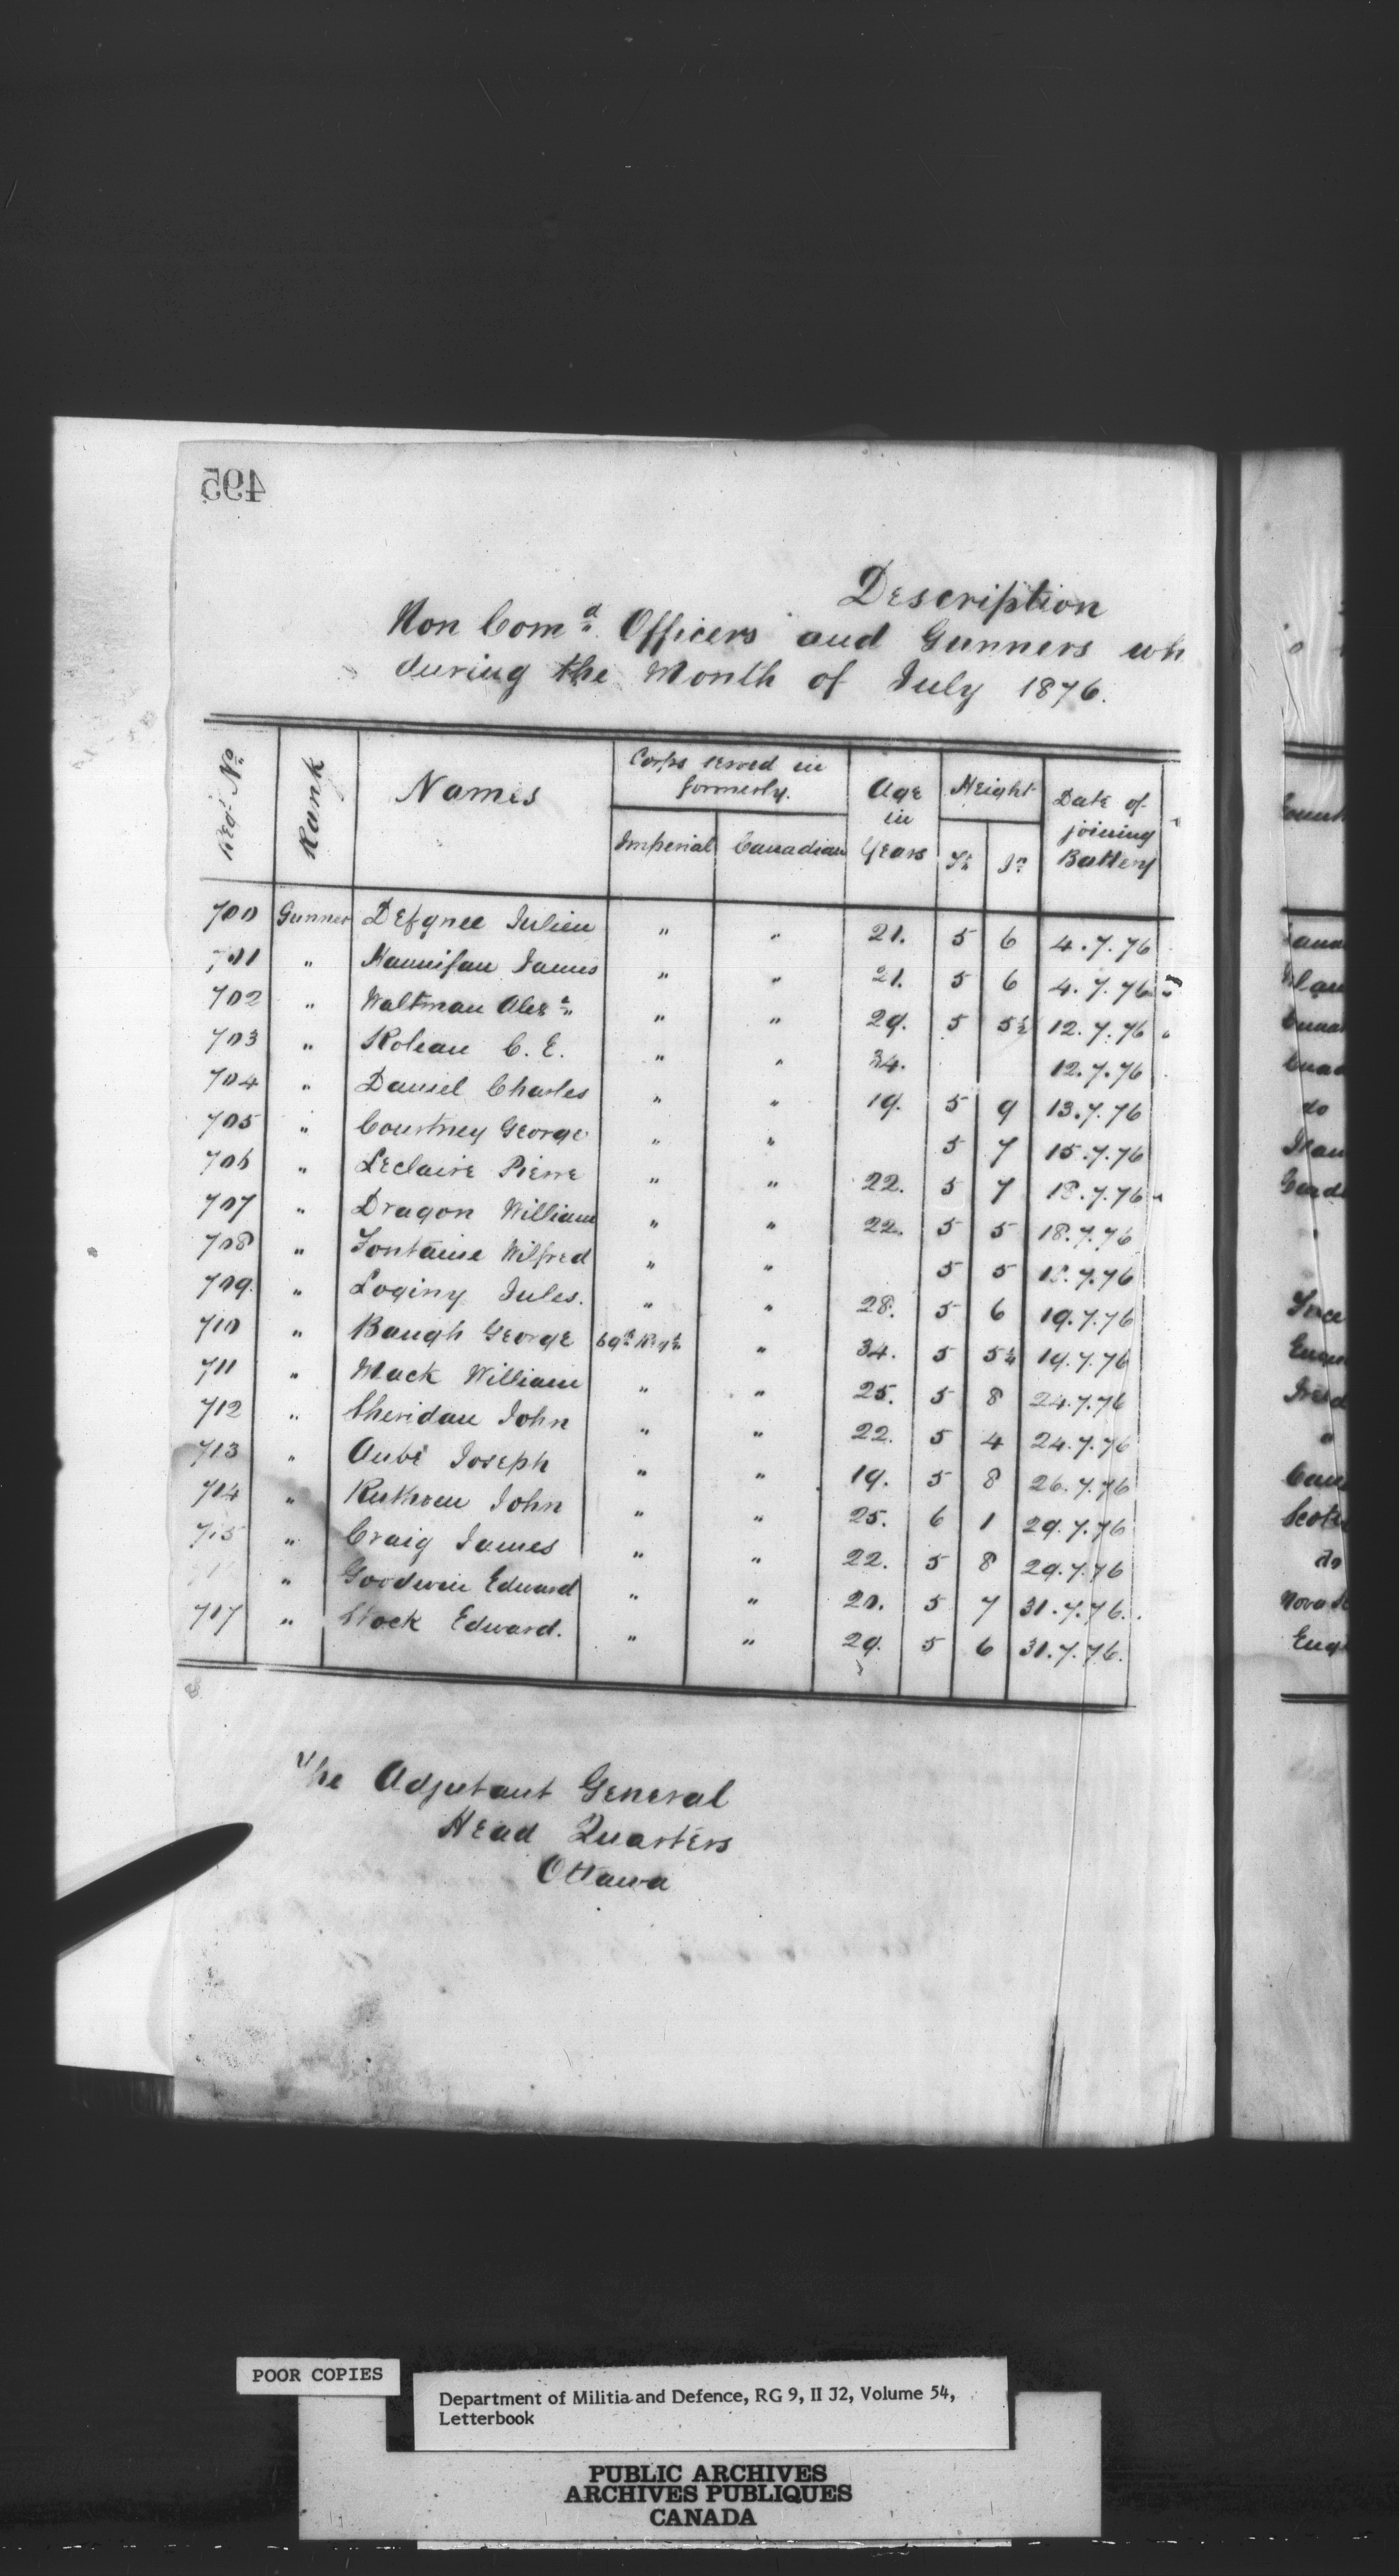 495
Description
Non Com.d Officers and Gunners wh
during the Month of July 1876.
Regt No. Rank Names Corps served in formerly. Imperial Canadian Age in Years Height Ft In Date of joining Battery
700 Gunner Defgnee Julien " " 21. 5 6 4.7.76
701 " Hannifan James " " 21. 5 6 4.7.76
702 " Waltman Alexr " " 29. 5 5½ 12.7.76
703 " Roleau C. E. " " 34. 12.7.76
704 " Daniel Charles " " 19. 5 9 13.7.76
705 " Courtney George " " 5 7 15.7.76
706 " Leclaire Pierre " " 22. 5 7 18.7.76
707 " Dragon William " " 22. 5 5 18.7.76
708 " Fontaine Wilfred " " 5 5 18.7.76
709. " Loginy Jules. " " 28. 5 6 19.7.76
710 " Baugh George 69th Regt " 34. 5 19.7.76
711 " Mack William " " 25. 5 8 24.7.76
712 " Sheridan John " " 22. 5 4 24.7.76
713 " Aubé Joseph " " 19. 5 8 26.7.76
714 " Ruthven John " " 25. 6 1 29.7.76
715 " Craig James " " 22. 5 8 29.7.76
" Goodwin Edward " " 20. 5 7 31.7.76.
717 " Stock Edward. " " 29. 5 6 31.7.76.
The Adjutant General
Head Quarters
Ottawa
do
do
POOR COPIES
Department of Militia and Defence, RG 9, II J2, Volume 54,
Letterbook
PUBLIC ARCHIVES
ARCHIVES PUBLIQUES
CANADA